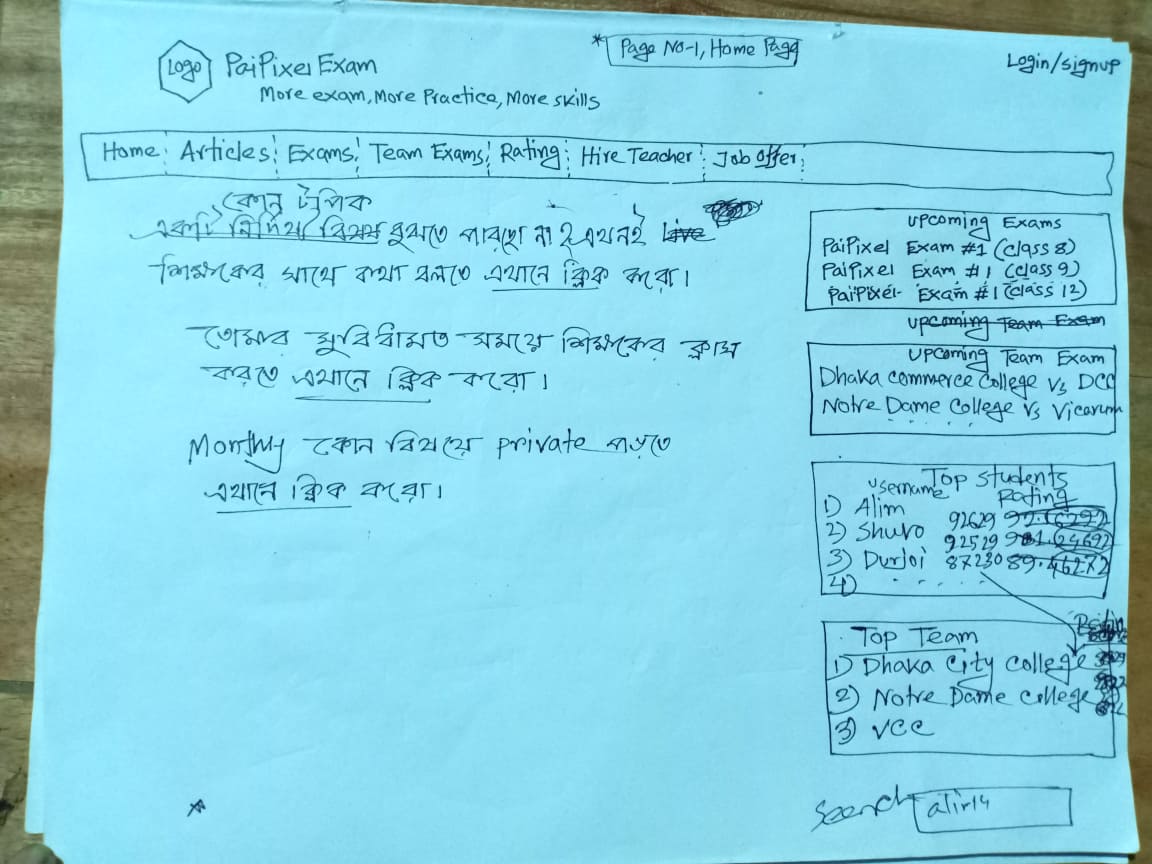 * Page No-1, Home Page
Logo PaiPixel Exam
More exam, More Practice, More skills
Login/signup
Home Articles Exams Team Exams Rating Hire Teacher Job offer
কোন টপিক
একটি নির্দিষ্ট বিষয় বুঝতে পারছো না? এখনই Live
শিক্ষকের সাথে কথা বলতে এখানে ক্লিক করো।
তোমার সুবিধামত সময়ে শিক্ষকের ক্লাস
করতে এখানে ক্লিক করো।
Monthly কোন বিষয়ে private পড়তে
এখানে ক্লিক করো।
Upcoming Exams
PaiPixel Exam #1 (class 8)
PaiPixel Exam #1 (class 9)
PaiPixel- Exam #1 (class 12)
Upcoming Team Exam
Upcoming Team Exam
Dhaka commerce College Vs DCC
Notre Dame College Vs Vicarum
......
Top students
username Rating
1) Alim 92629
2) Shuvo 92529
3) Durjoi 87230
4) ......
Top Team
1) Dhaka City college
2) Notre Dame college
3) VCC
Search alir14